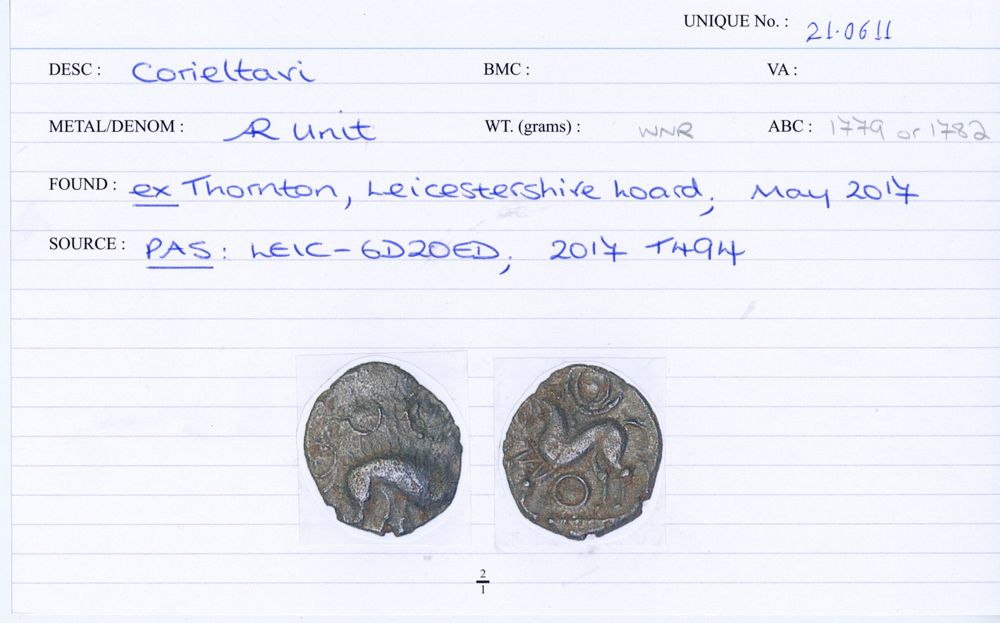 UNIQUE No. : 21.0611
DESC : Corieltavi BMC : VA :
METAL/DENOM : AR Unit WT. (grams) : WNR ABC : 1779 or 1782
FOUND : ex Thornton, Leicestershire hoard; May 2017
SOURCE : PAS: LEIC-6D20ED; 2017 T494
2/1